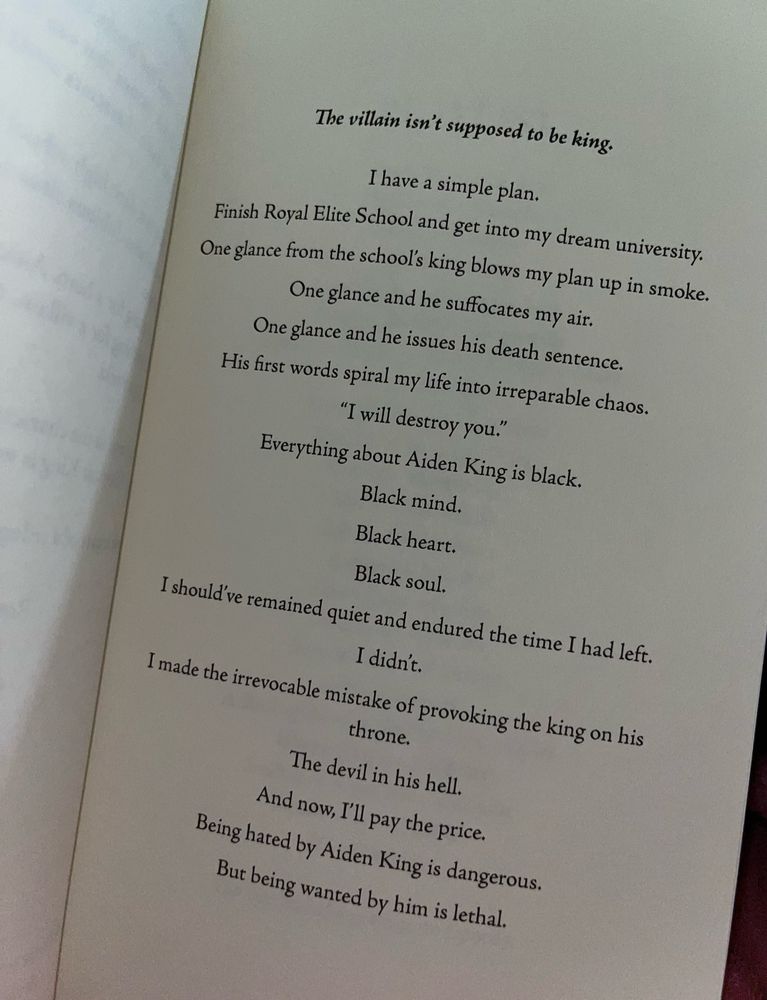 The villain isn't supposed to be king.
I have a simple plan.
Finish Royal Elite School and get into my dream university.
One glance from the school's king blows my plan up in smoke.
One glance and he suffocates my air.
One glance and he issues his death sentence.
His first words spiral my life into irreparable chaos.
“I will destroy you.”
Everything about Aiden King is black.
Black mind.
Black heart.
Black soul.
I should've remained quiet and endured the time I had left.
I didn't.
I made the irrevocable mistake of provoking the king on his
throne.
The devil in his hell.
And now, I'll pay the price.
Being hated by Aiden King is dangerous.
But being wanted by him is lethal.